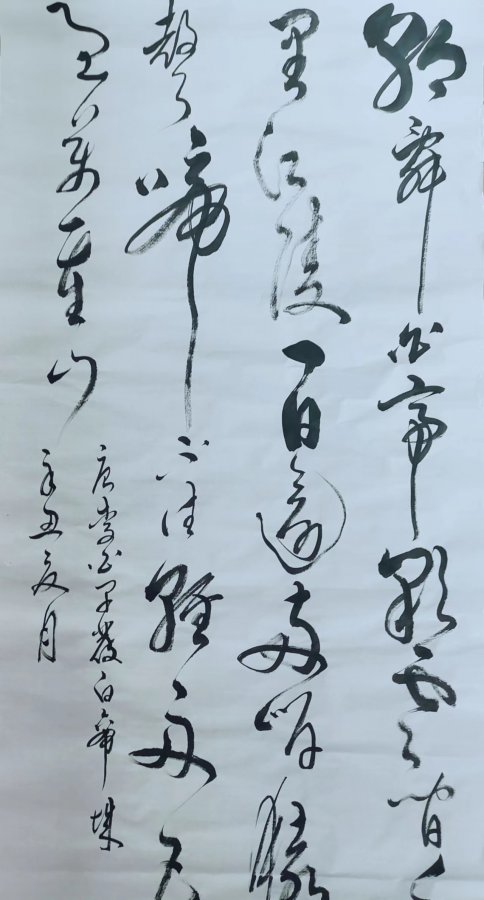 朝辭白帝彩雲間千
里江陵一日還兩岸猿
聲啼不住輕舟已
過萬重山
唐李白早發白帝城
辛丑夏月